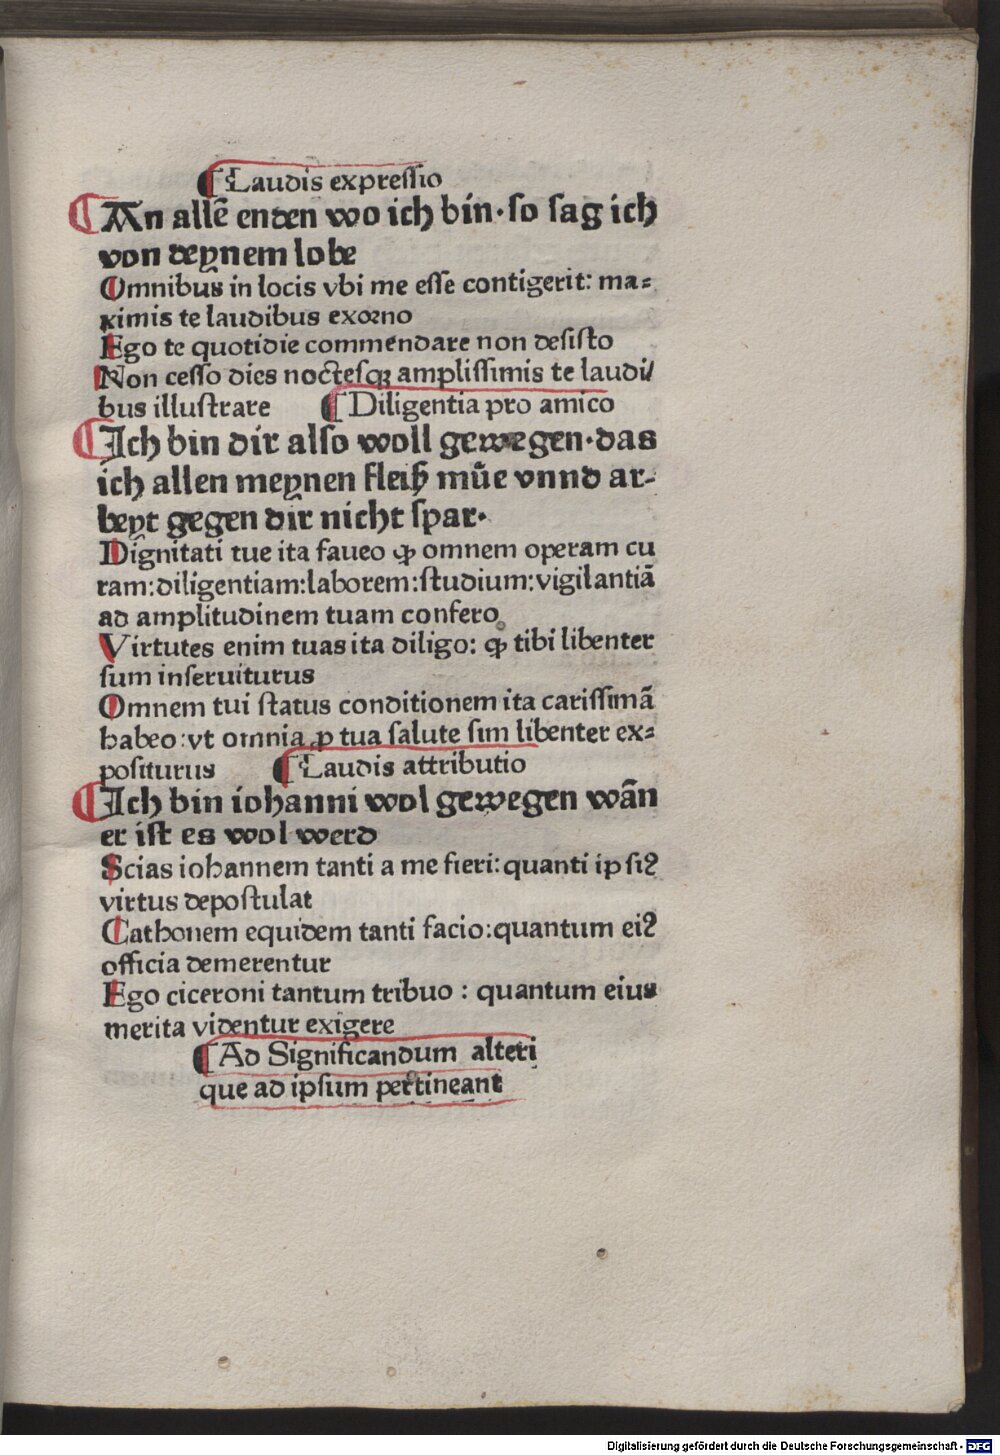 ¶ Laudis expressio
¶ An allē enden wo ich bin· so sag ich
von deynem lobe
Omnibus in locis vbi me esse contigerit: ma⸗
ximis te laudibus exorno
Ego te quotidie commendare non desisto
Non cesso dies noctesqꝫ amplissimis te laudi/
bus illustrare ¶ Diligentia pro amico
¶ Ich bin dir also woll gewegen· das
ich allen meynen fleiß mūe vnnd ar⸗
beyt gegen dir nicht spar·
Dignitati tue ita faueo ꝙ omnem operam cu
ram: diligentiam: laborem: studium: vigilantiā
ad amplitudinem tuam confero
Virtutes enim tuas ita diligo: ꝙ tibi libenter
sum inseruiturus
Omnem tui status conditionem ita carissimā
habeo: vt omnia ꝓ tua salute sim libenter ex⸗
positurus ¶ Laudis attributio
¶ Ich bin iohanni wol gewegen wān
er ist es wol werd
Scias iohannem tanti a me fieri: quanti ipsiꝰ
virtus depostulat
Cathonem equidem tanti facio: quantum eiꝰ
officia demerentur
Ego ciceroni tantum tribuo : quantum eius
merita videntur exigere
¶ Ad Significandum alteri
que ad ipsum pertineant
Digitalisierung gefördert durch die Deutsche Forschungsgemeinschaft - DFG